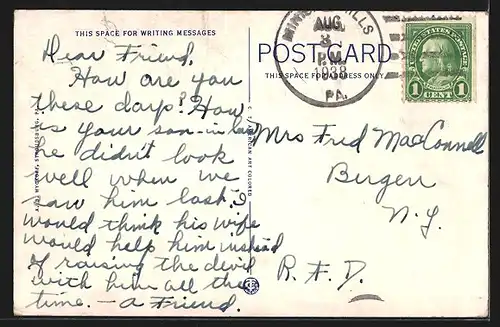 THIS SPACE FOR WRITING MESSAGES
Dear Friend,
How are you
these days? How
is your son-in-law
he didn't look
well when we
saw him last. I
would think his wife
would help him instead
of raising the devil
with him all the
time. — a Friend.
POST CARD
THIS SPACE FOR ADDRESS ONLY
AUG
3
P.M.
1938
PA.
UNITED STATES POSTAGE
1 CENT 1
Mrs Fred MacConnell
Bergen
N.Y.
R.F.D.